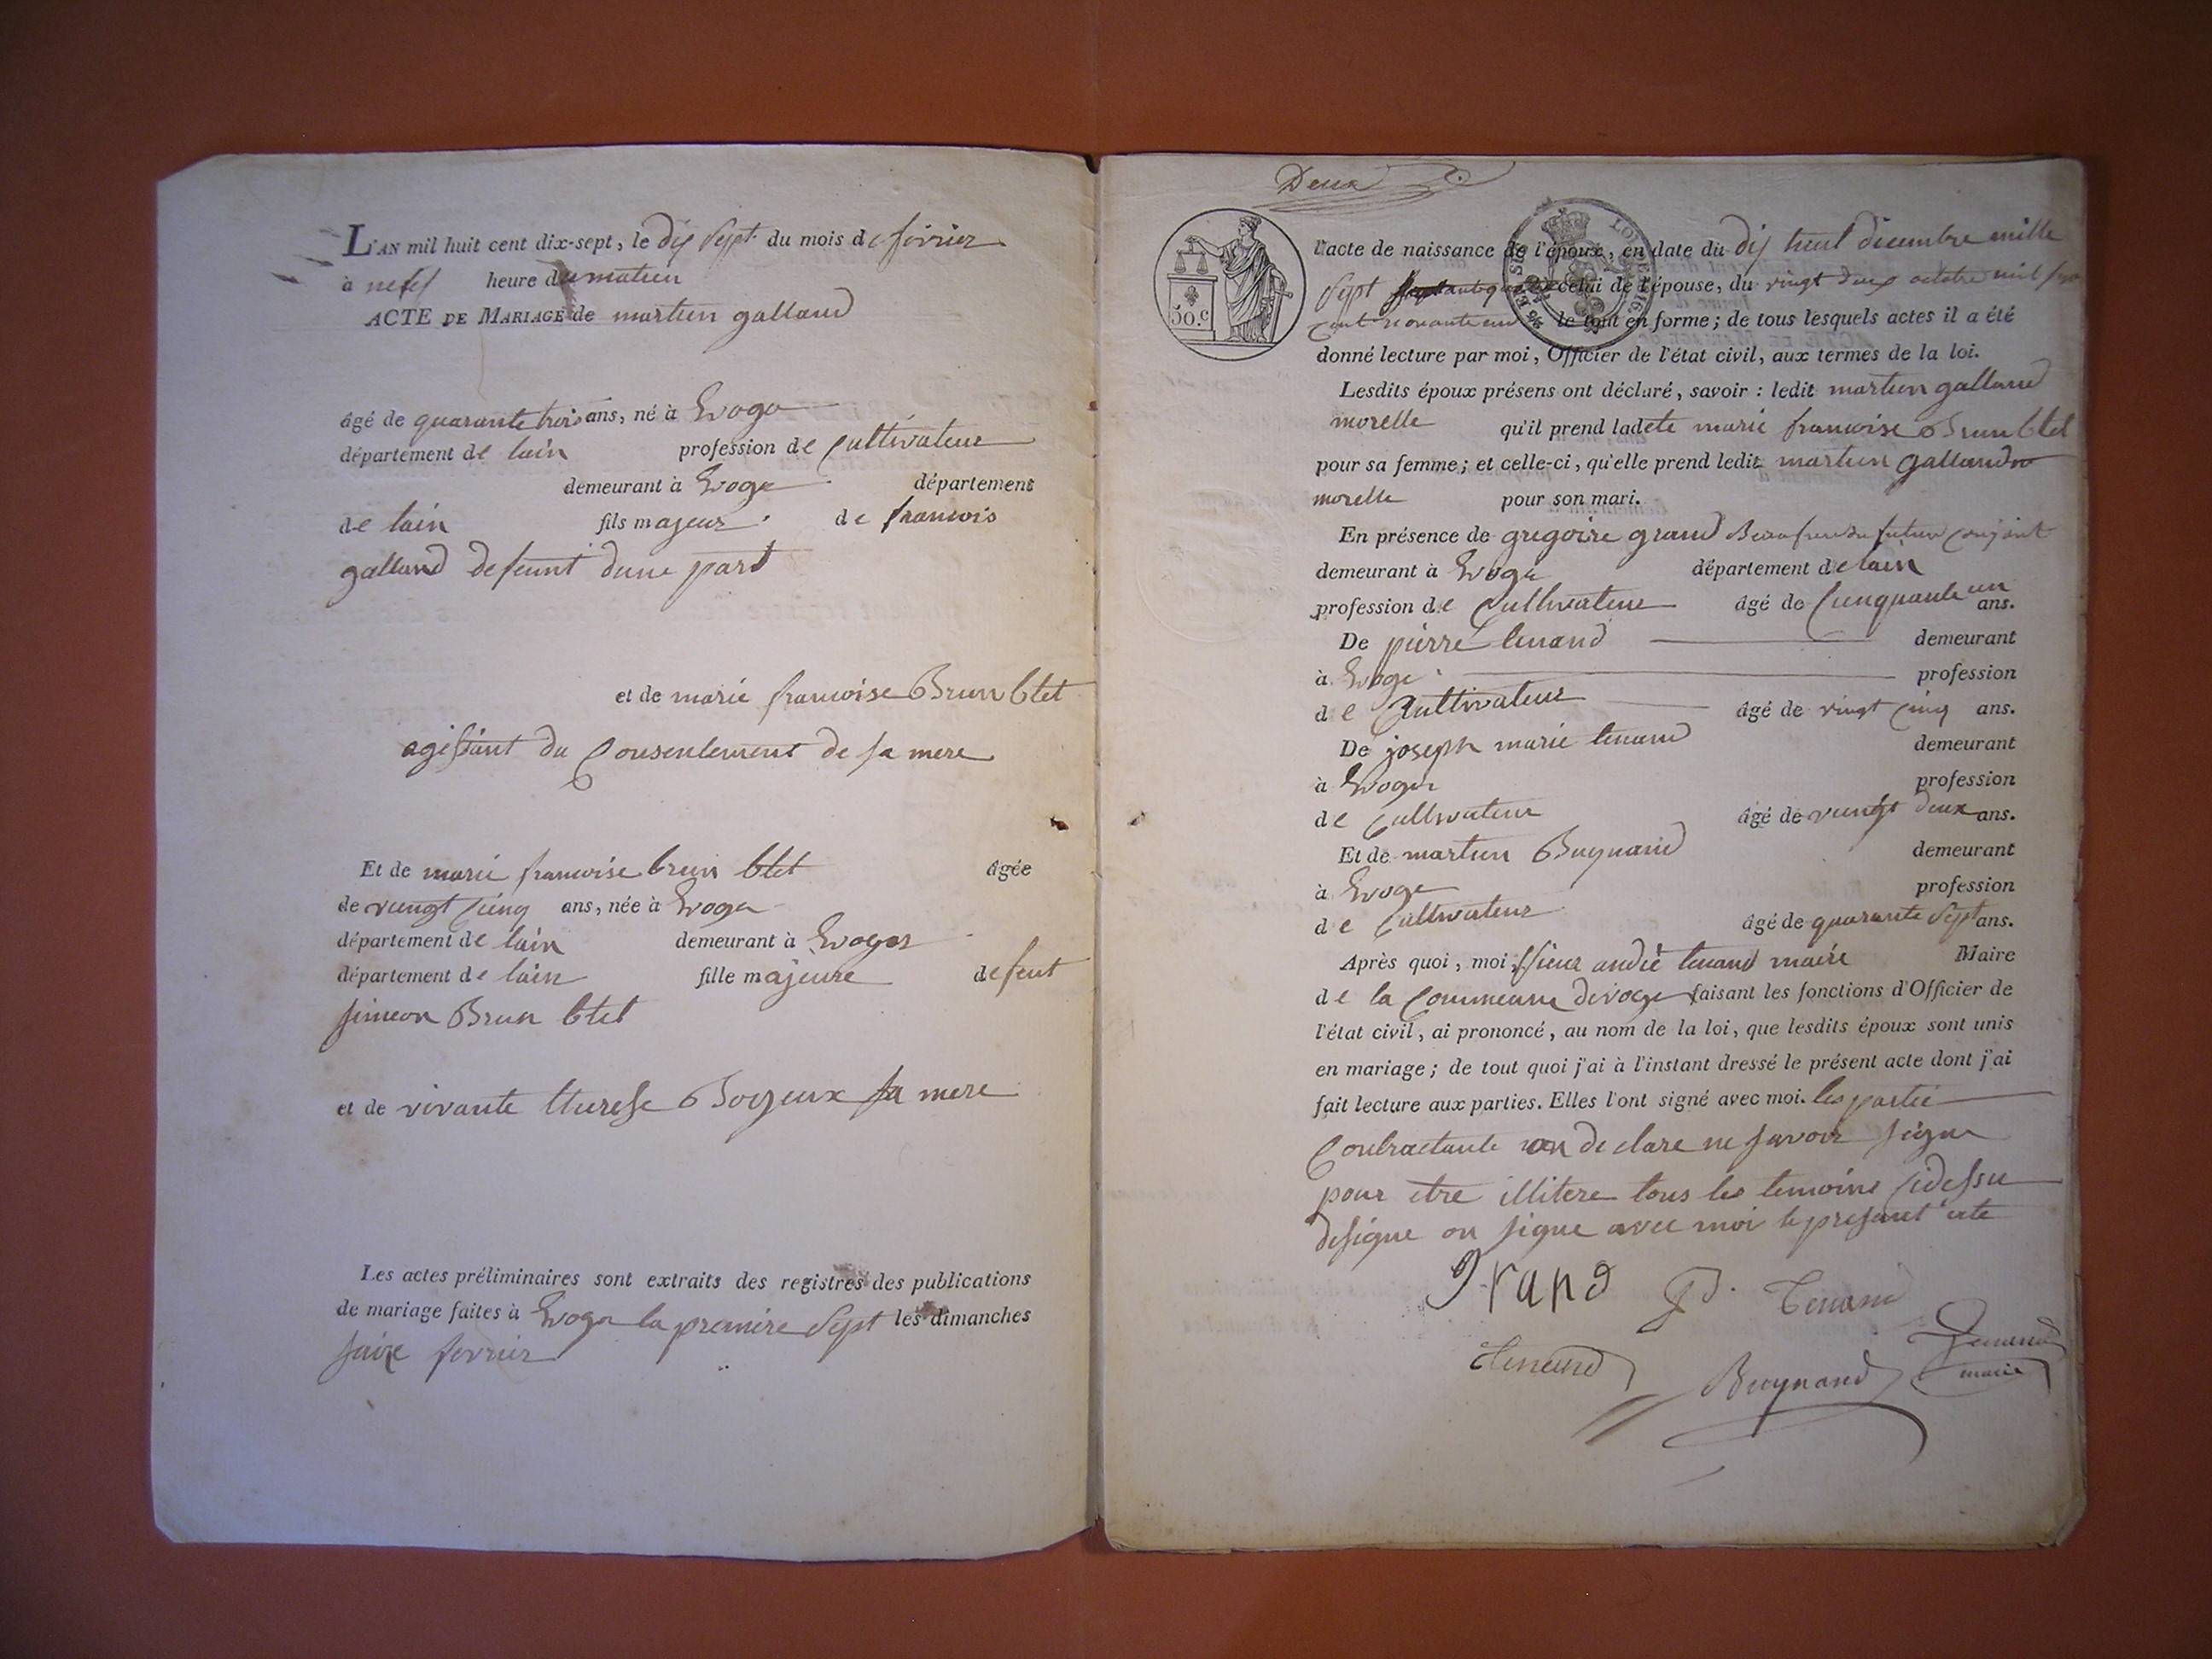 L'AN mil huit cent dix-sept, le dix sept du mois de fevrier
à neuf heure du matien
ACTE DE MARIAGE de martien galland
âgé de quarante trois ans, né à Evoge
département de lain profession de Cultivateur
demeurant à Evoge département
de lain fils majeur de francois
galland defeunt dune part
et de marie francoise Brun btet
agissant du Consentement de sa mere
Et de marie francoise brun btet âgée
de vengt cienq ans, née à Evoge
département de lain demeurant à Evoges
département de lain fille majeure defeut
simeon Brun btet
et de vivante therese Bozeux sa mere
Les actes préliminaires sont extraits des registres des publications
de mariage faites à Evoge la premire sept les dimanches
saize fevrier
Deux
30.c
l'acte de naissance de l'époux, en date du dix heut decembre mille
sept celui de l'épouse, du vingt deux octobre mil sep
cent nonante un le tout en forme; de tous lesquels actes il a été
donné lecture par moi, Officier de l'état civil, aux termes de la loi.
Lesdits époux présens ont déclaré, savoir : ledit martien galland
morelle qu'il prend ladete marie francoise Brun btet
pour sa femme; et celle-ci, qu'elle prend ledit martien galland
morelle pour son mari.
En présence de gregoire grand Beaufrere du futur conjoint
demeurant à Evoge département de lain
profession de Cultivateur âgé de Cienquante un ans.
De pierre tenand demeurant
à Evoge profession
de Cultivateur âgé de vingt cinq ans.
De joseph marie tenand demeurant
à Evoges profession
de Cultivateur âgé de vengt deux ans.
Et de martien Buynand demeurant
à Evoge profession
de Cultivateur âgé de quarante sept ans.
Après quoi, moi, sieur andré tenand maire Maire
de la Commeune devoge faisant les fonctions d'Officier de
l'état civil, ai prononcé, au nom de la loi, que lesdits époux sont unis
en mariage; de tout quoi j'ai à l'instant dressé le présent acte dont j'ai
fait lecture aux parties. Elles l'ont signé avec moi. les partie
Contractante on declare ne savoir signe
pour etre illitere tous les temoins cidessu
designe on signe avec moi le present acte
Grand P. Tenand
Tenand Buynand Tenand
maire